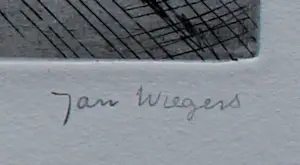 Jan Wiegers